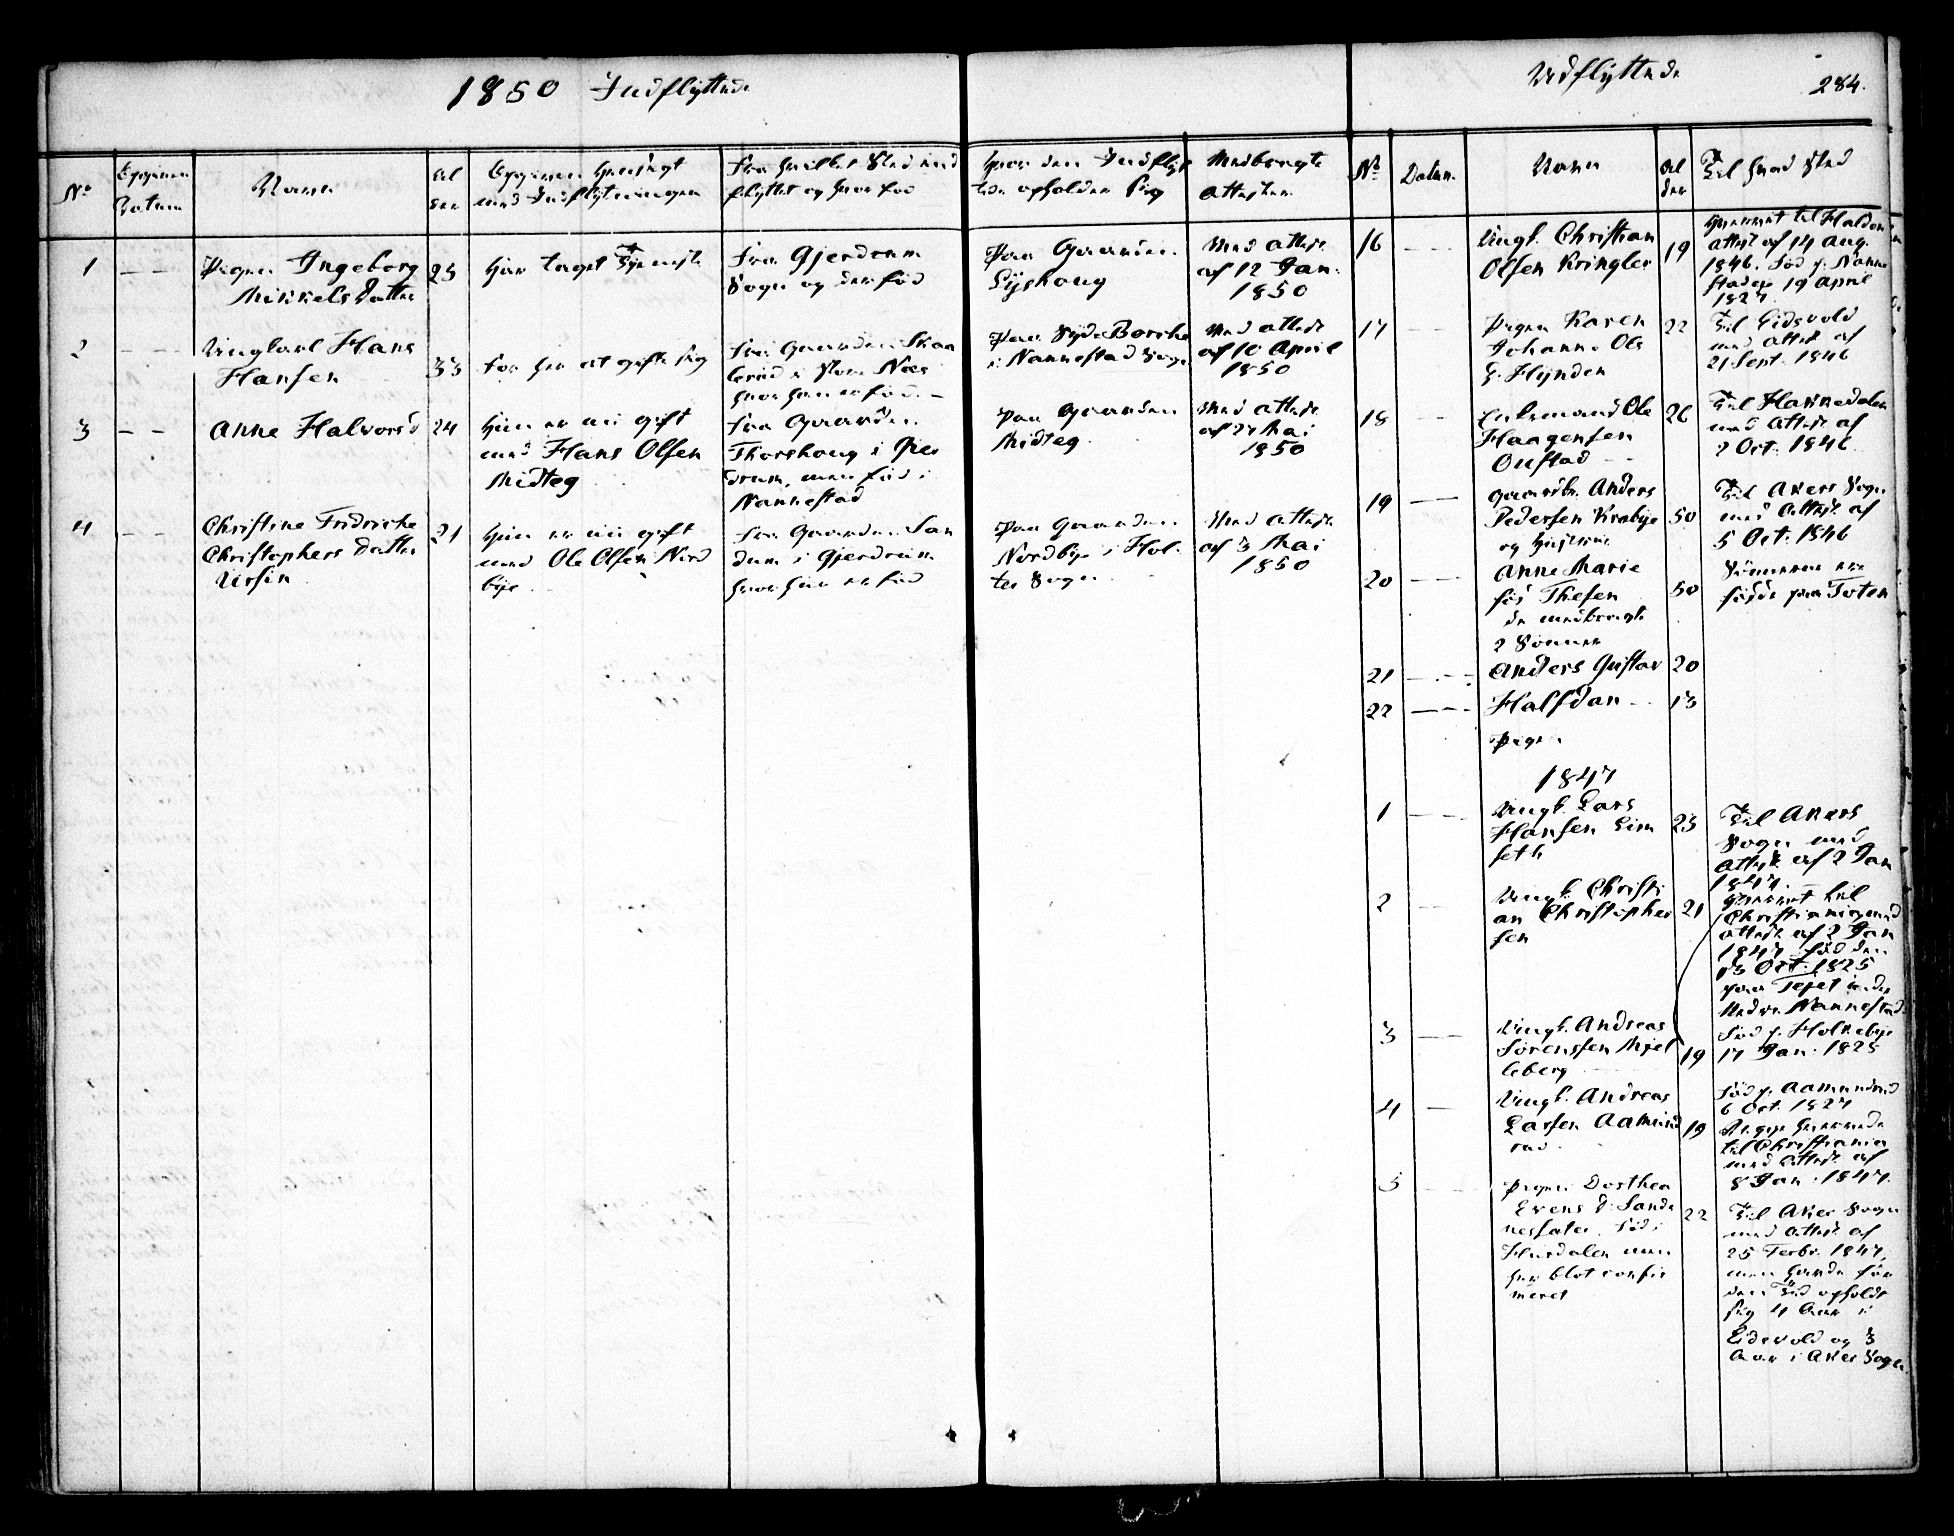 1850 Indflyttede
Udflyttede
284.
No
Datum
Navn
Al
der
med Indflytningen
Fra hvilket Sted ind
flyttet og hvor fød
Hvor den Indflyt
tede opholder sig
Medbragte
Attester
No
Datum
Navn
Al
der
Til hvad Sted
1 - - Pigen Ingeborg
Mikkels Datter
25
Har taget Tjeneste
Fra Gjerdrum
Sogn og der fød
Paa Gaarden
Lyshoug
Med Attest
af 12 Jan.
1850
2 - - - Ungkarl Hans
Hansen
33
For her at gifte sig
Fra Gaarden
i Store Næs
hvor han er fød. -
Paa
i Nannestad Sogn
Med Attest
af 10 April
1850
3 - - Anne Halvorsd
24
Hun er nu gift
med Hans Olsen
Midteg
Fra Gaarden
Thorshoug i Gjer
drum, men fød i
Nannestad
Paa Gaarden
Midteg
Med Attest
af 27 Mai
1850
4 - - Christine Fridricke
Christophers Datter
Ursin
21
Hun er nu gift
med Ole Olsen Nord
bye
Fra Gaarden San
dum i Gjerdrum
hvor hun er fød
Paa Gaarden
Nordbye i Hol
ter Sogn
Med Attest
af 3 Mai
1850
16 - - - Ungk. Christian
Olsen Kringler
19
til Halden
Attest af 14 Aug.
1846. Fød p. Nanne
stad 19 April
1827
17 - - Pigen Karen
Johanne Ols
d. Flynden
22
Til Eidsvold
med Attest af
21 Sept. 1846
18 - - Ole
Haagensen
Oustad - -
26
Til
med Attest af
2 Oct. 1846
19 - - Gaardbr. Anders
Pedersen Krabye
og Hustrue
50
Til Akers Sogn
med Attest af
5 Oct. 1846
20 - - - Anne Marie
fød Thesen
de medbragte
2 Sønner
50
Sønnerne ere
fødde paa Toten
21 - - - Anders Gustav 20
22 - - - Halfdan - - 13
Pigen
1847
1 - - Ungk. Lars
Hansen Lim
seth
23
Til Akers
Sogn med
Attest af 2 Jan
1847. -
2 - - Ungk. Christi
an Christopher
sen
21
til
Christiania med
Attest af 2 Jan
1847 fød den
13 Oct. 1825
paa Tejet
Nannestad
3 - - Ungk. Andreas
Sørenssen Mjel
leberg
19
Fød p. Holkebye
17 Jan. 1828
4 - - Ungk. Andreas
Larsen Aamund
rud
19
Fød p. Aamundrud
6 Oct. 1827
Begge
til Christiania
med Attest af
8 Jan. 1847.
5 - - - Pigen Dorthea
Evens d. Sande
Fød i
Hurdalen men
her blot confir
meret
22
Til Aker Sogn
med Attest af
25 Febr. 1847,
men havde før
den Tid opholdt
sig 4 Aar i
Eidsvold og 3
Aar i Aker Sogn